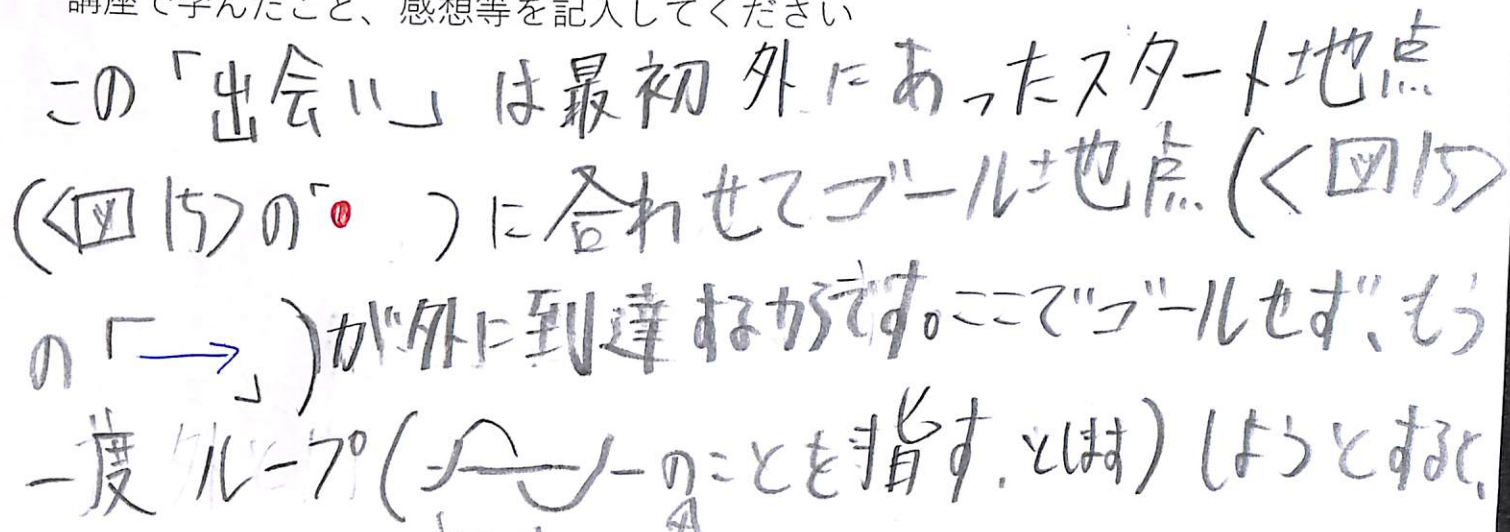 講座で学んだこと、感想等を記入してください
この「出会い」は最初外にあったスタート地点
(<図15>の「●　)に合わせてゴール地点(<図15>
の「→」)が外に到達するからです。ここでゴールせず、もう
一度ループ(のことを指す、とします)しようとすると、